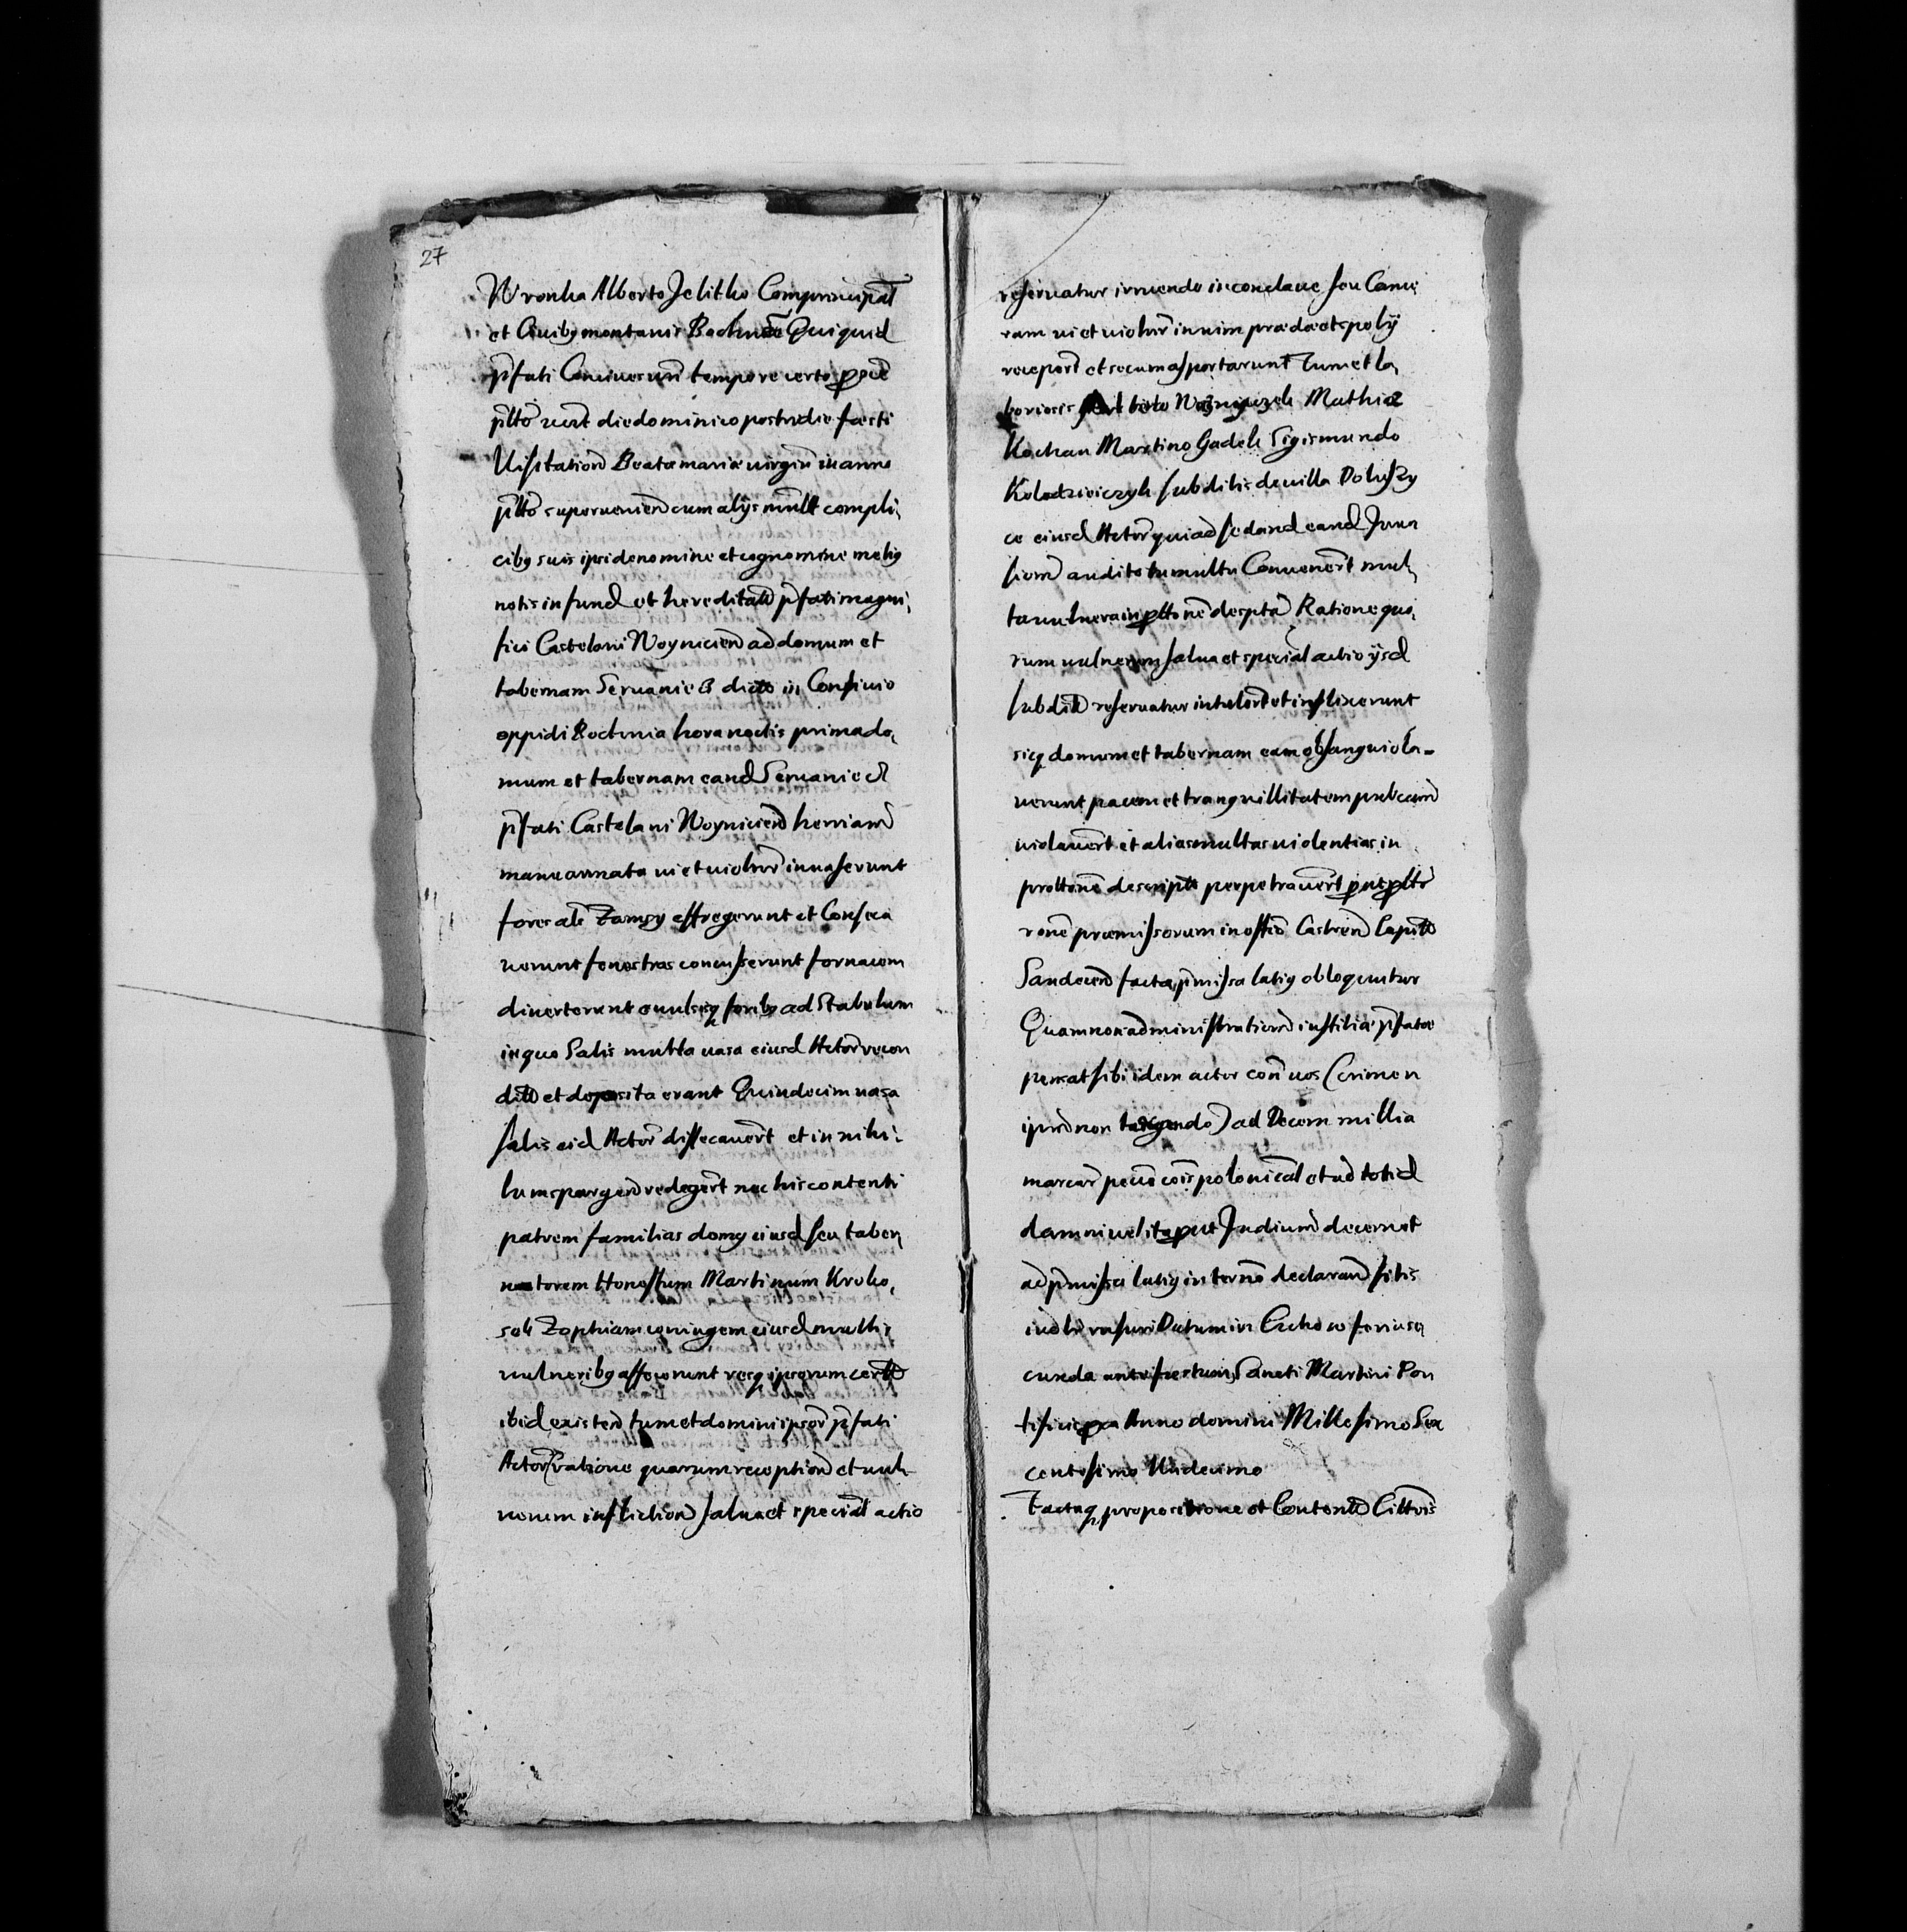 27
Wronka Alberto Jelitko Comprincipal
et Ciuibus montanis Bochnen Qui quid
pfati Conciues uri tempore certo proxe
ptto uert die dominico postridie faesti
Uisitation Beatae mariae uirgin in anno
ptto superuenien cum alijs mult compli,
cibus suis ipsi de nomine et cognomine melius
notis in fund et hereditate pfati magni,
fici Castelani Woynicien ad domum et
tabernam Seruaniec dicto in Confinio
oppidi Bochnia hora noctis prima do,
mum et tabernam eand Seruaniec
pfati Castelani Woynicien
manu armata ui et uiolenr inuaserunt
fores als Zamzy effregerunt et Conseca
uerunt fenestras concusserunt fornacem
diuerterunt euulsisq foribus ad Stabulum
in quo Salis multa uasa eiusd Actor recon
dita et deposita erant Quindecim uasa
salis eid Actor dissecauert et in nihi,
lum spargen redegert nec his contenti
patrem familias domus eiusd seu taber,
natorem Honestum Martinum Kroko,
sek Zophiam coniugem eiusd multis
uulneribus affecerunt resq ipsorum certas
ibid existen tum et domini ipsor pfati
Actor ratione quarum reception et uul-
nerum infliction salua et special actio
reseruatur irruendo in conclaue seu Came
ram ui et uiolenr in uim praedae et spolij
recepert et secum asportarunt Tum et la,
boriosis Mathiae
Kochan Martino Gadek Sigismundo
Kolodzieiczyk subditis de uilla Doluszy
ce eiusd Actor qui ad sedand eand Inua
sionem audito tumultu Conuenert mul,
ta uulnera in prottone descpta Ratione quo,
rum uulnerum salua et special actio ijsd
subdit reseruatur intulert et inflixerunt
sicq domum et tabernam eam obsanguiola-
uerunt pacem et tranquillitatem publicam
uiolauert et alias multas uiolentias in
prottone descripta perpetrauert prout prottr
rone praemissorum in offic Castren Capitli
Sandecen facta pmissa latius obloquuntur
Quam non administrationem iustitiae pfatae
pensat sibi idem actor con uos (crimen
ipsum non tangendo) ad Decem millia
marcar pecu cois polonical et ad totid
damni uel ita put Iudicium decernet
ad pmissa latius in termo declarand sitis
iudlr rnsuri Datum in Czchow feria se
cunda ante festum Sancti Martini Pon
tificis pxa Anno domini Millesimo Sex
centesimo Undecimo
Factaq propositione et Content Littris